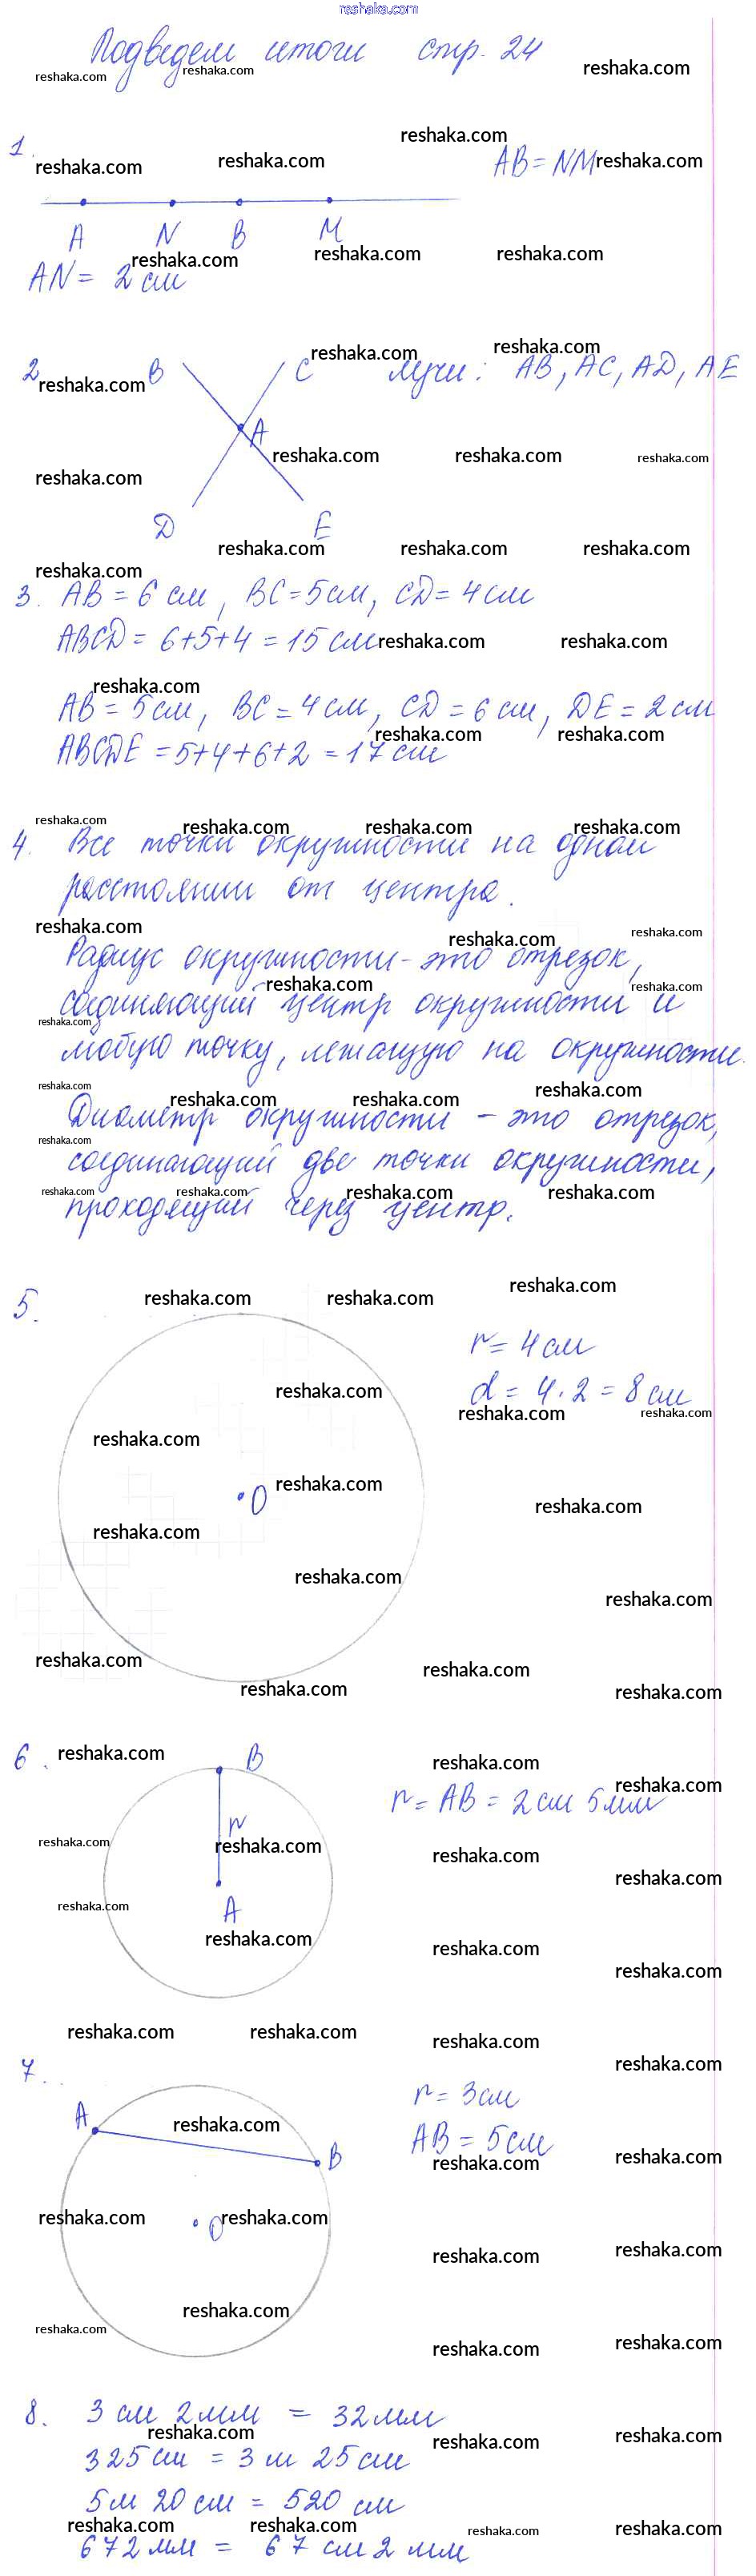 reshaka.com
Подведем итоги стр. 24
1.
AB = NM
A N B M
AN = 2 см
2 B C лучи: AB, AC, AD, AE
A
D E
3. AB = 6 см, BC = 5 см, CD = 4 см
ABCD = 6+5+4 = 15 см
AB = 5 см, BC = 4 см, CD = 6 см, DE = 2 см
ABCDE = 5+4+6+2 = 17 см
4. Все точки окружности на одном
расстоянии от центра.
Радиус окружности - это отрезок,
соединяющий центр окружности и
любую точку, лежащую на окружности.
Диаметр окружности - это отрезок,
соединяющий две точки окружности,
проходящий через центр.
5.
r = 4 см
d = 4 · 2 = 8 см
O
6.
B
r = AB = 2 см 5 мм
r
A
7.
r = 3 см
A
AB = 5 см
B
O
8. 3 см 2 мм = 32 мм
325 см = 3 м 25 см
5 м 20 см = 520 см
672 мм = 67 см 2 мм